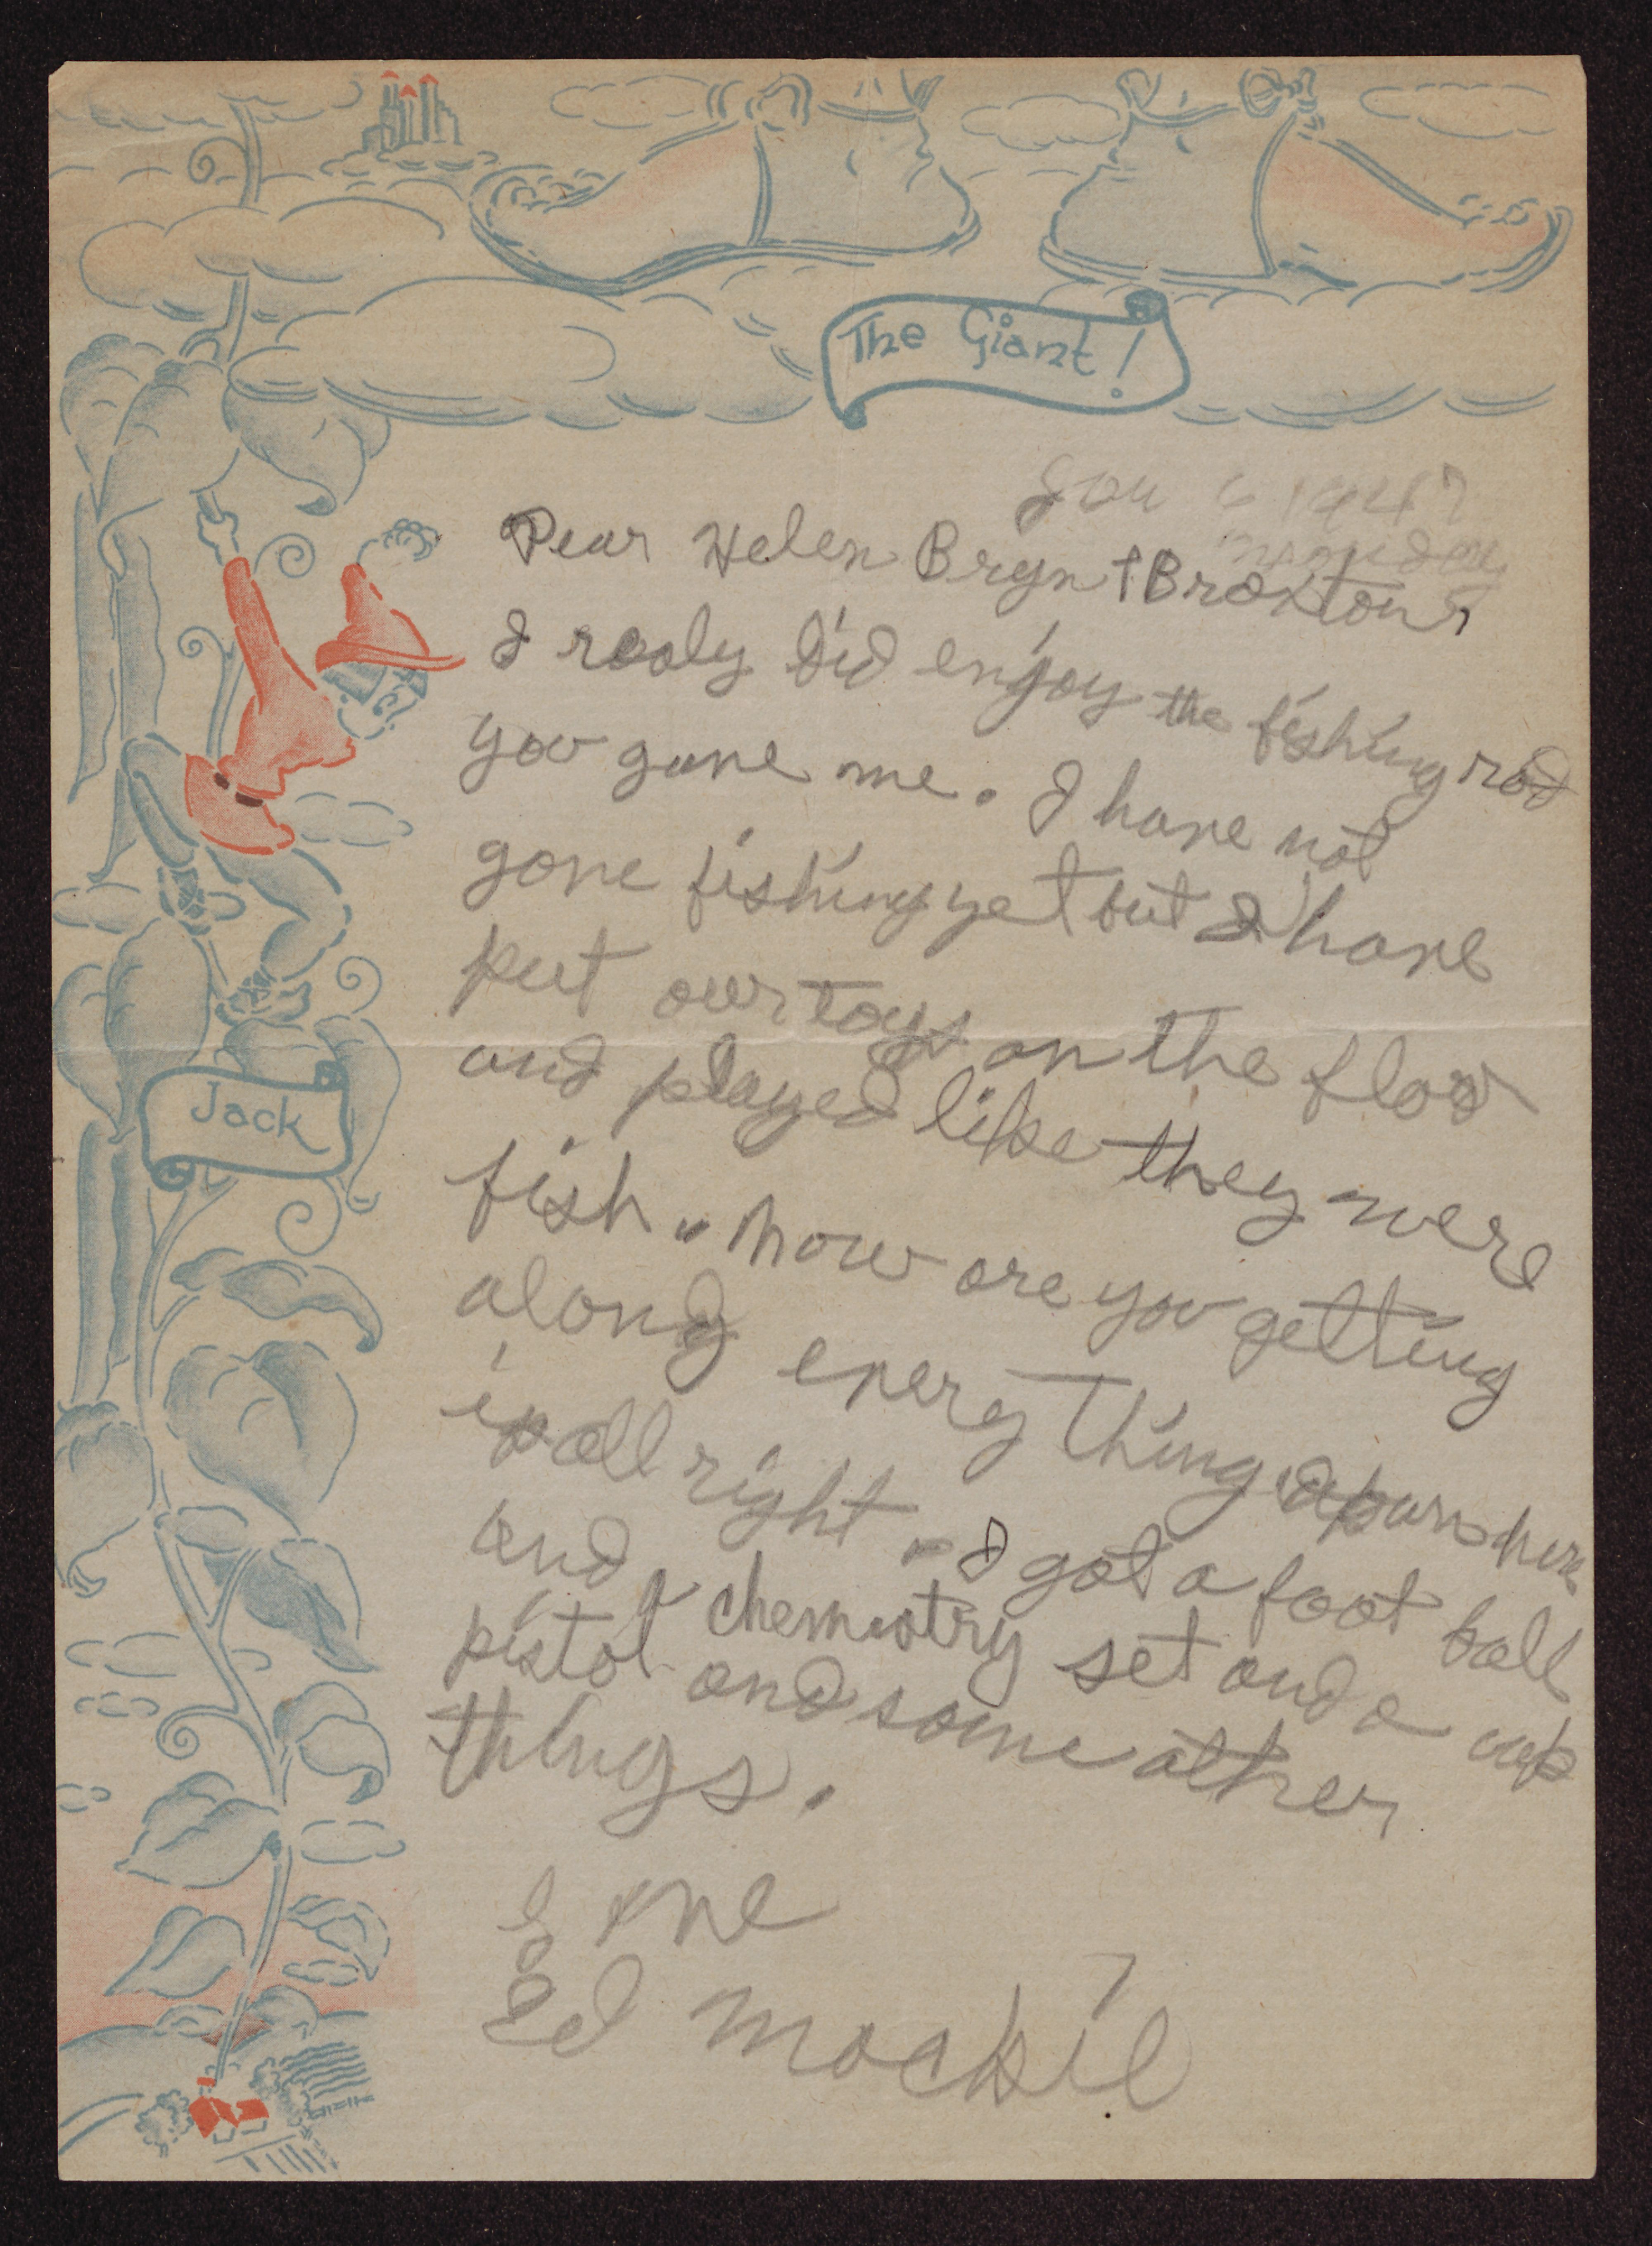 The Giant!
Jan 6 1947
monday
Dear Helen Bryn + Broxton,
I realy did enjoy the fishing rod
you gave me. I have not
gone fishing yet but I have
put our toys on the floor
and played like they were
fish. how are you getting
along every thing down here
is all right. I got a foot ball
and a chemistry set and a cap
pistol and some other
things.
Love
Ed Mackie
Jack